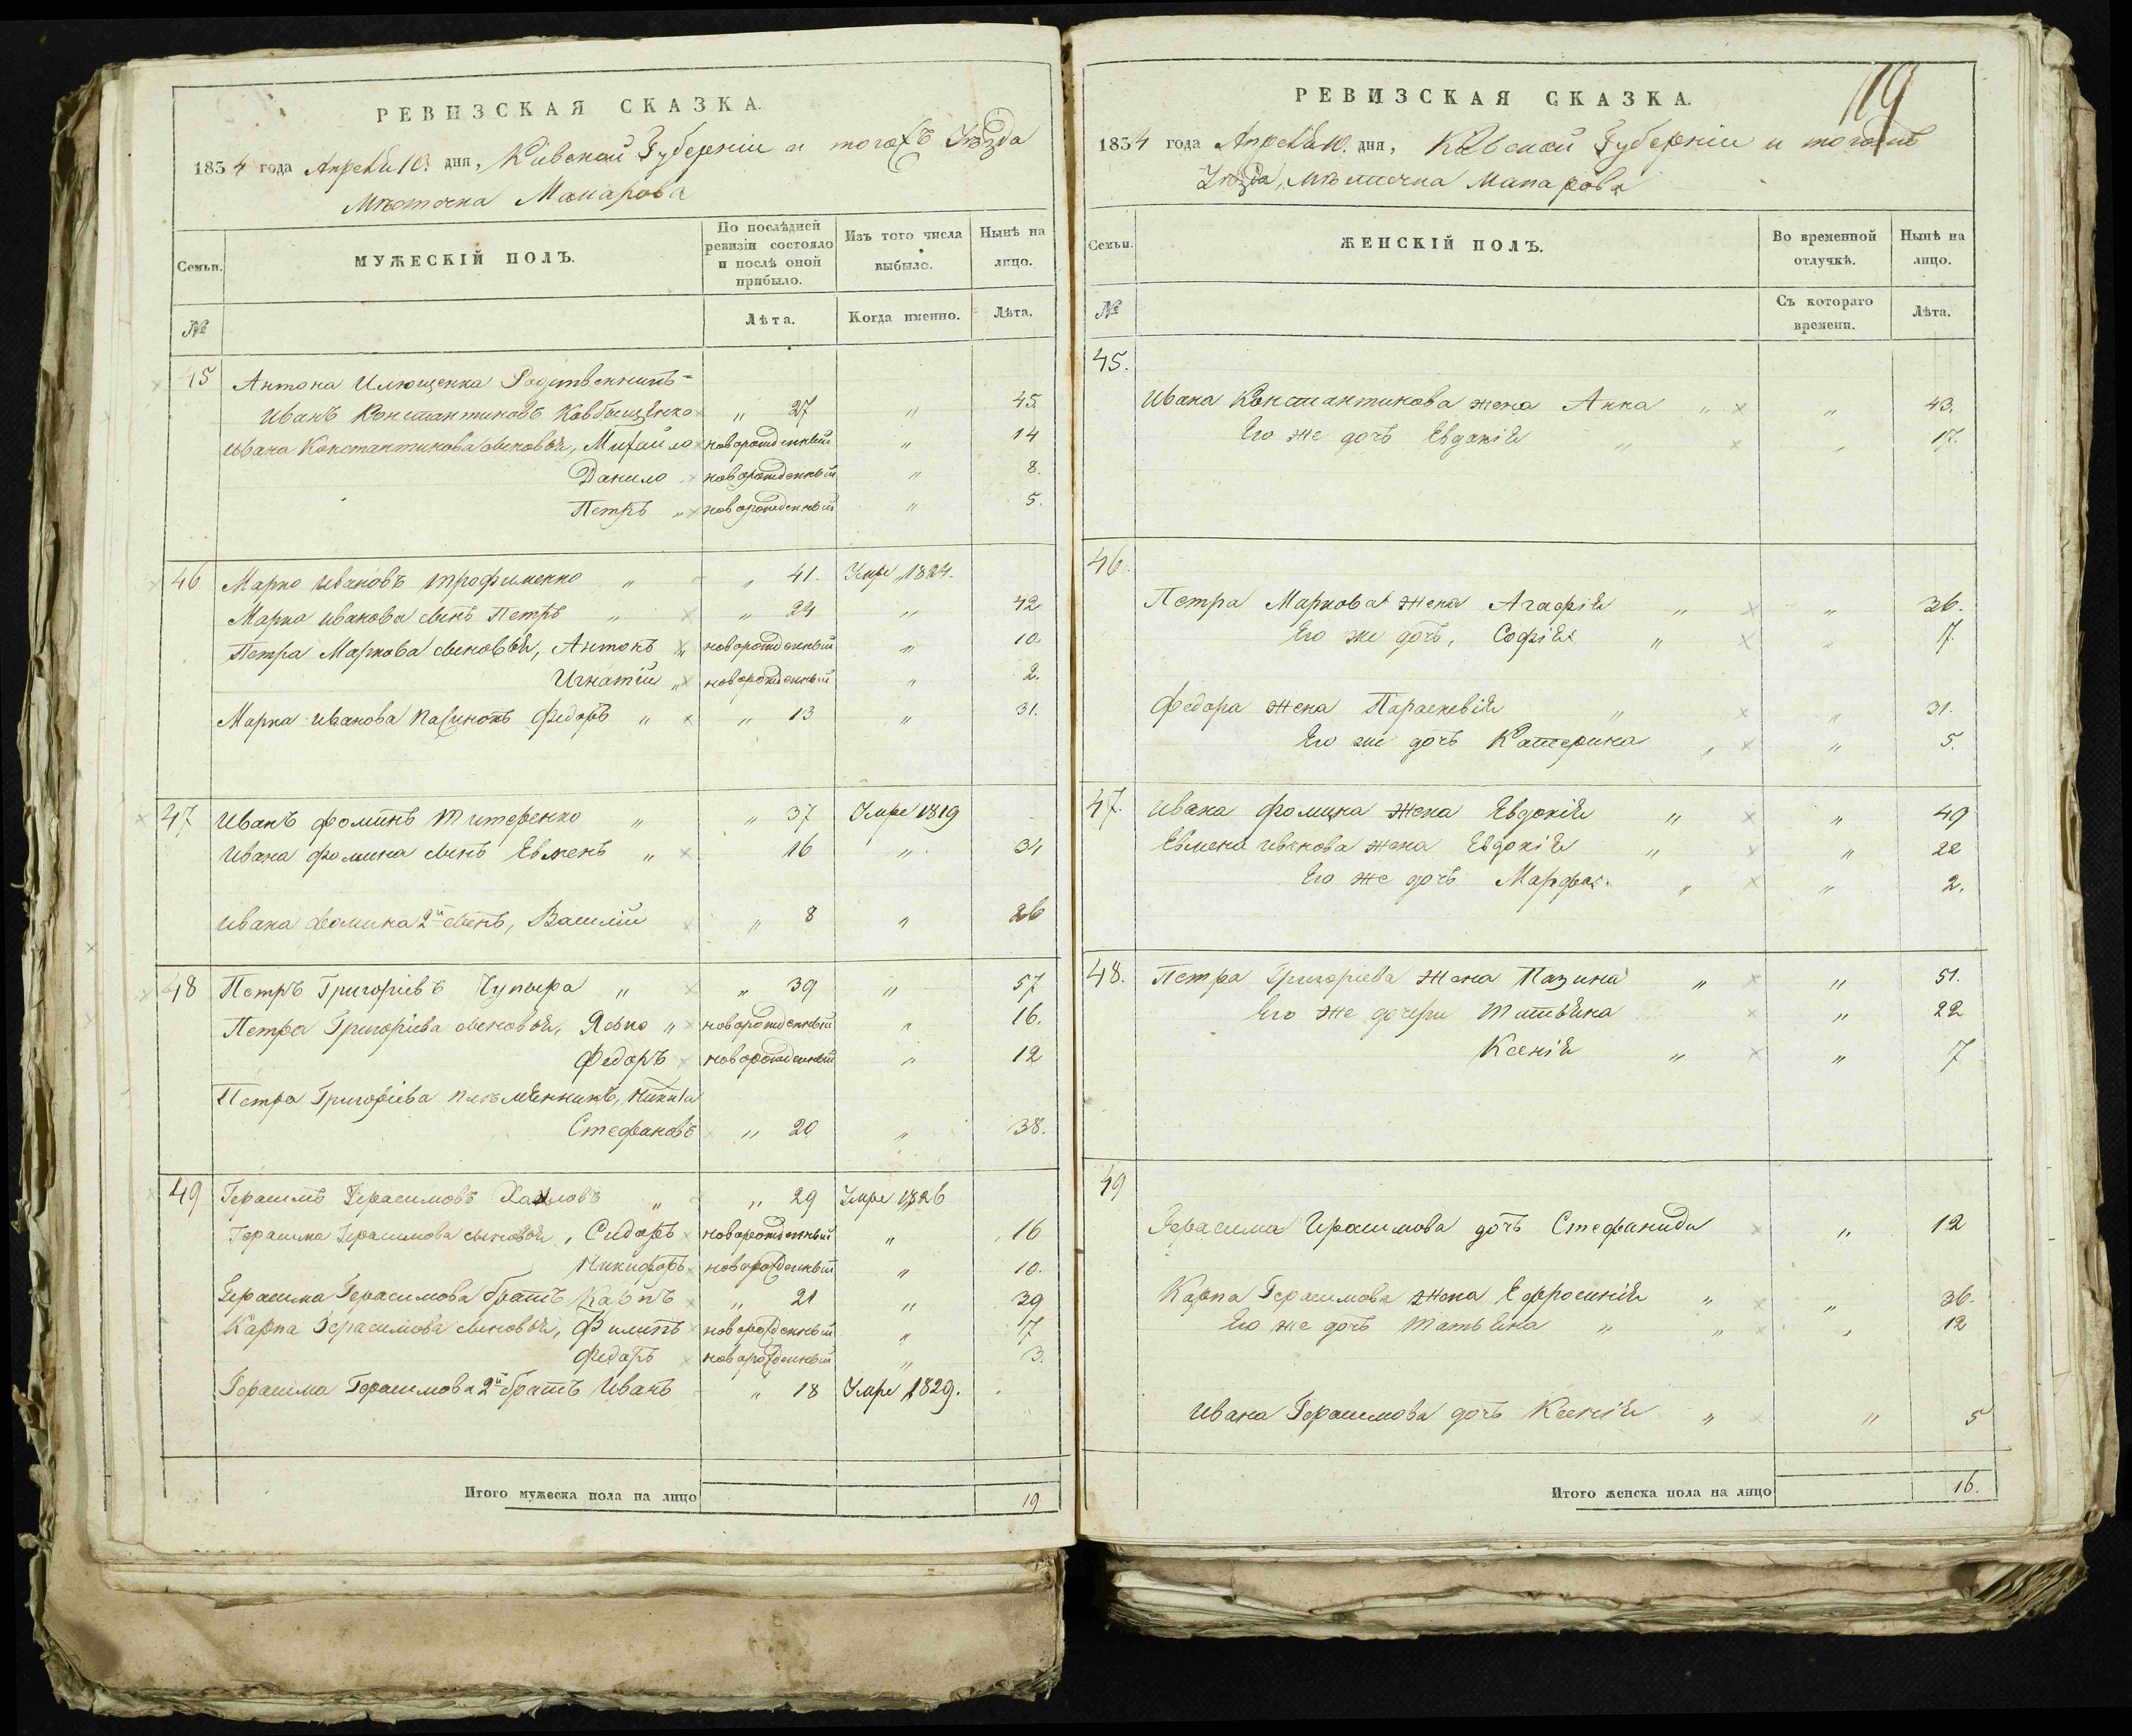 РЕВИЗСКАЯ СКАЗКА.
1834 года Апреля 10. дня, Кіевской Губерніи и тогожъ Уѣзда
Мѣстечка Макарова
Семьи.
МУЖЕСКІЙ ПОЛЪ.
По послѣдней ревизіи состояло и послѣ оной прибыло.
Изъ того числа выбыло.
Нынѣ на лицо.
№
Лѣта.
Когда именно.
Лѣта.
45 Антона Илющенка Родственникъ
Иванъ Константиновъ " 27 " 45.
Ивана Константинова сыновья, Михайло новорожденный " 14
Данило новорожденный " 8.
Петръ " новорожденный " 5.
46. Марко Ивановъ Трофименко " " 41. Умре 1824.
Марка Иванова сынъ Петръ " " 24 " 42
Петра Маркова сыновья, Антонъ " новорожденный " 10.
Игнатій " новорожденный " 2.
Марка Иванова пасинокъ Федоръ " " 13 " 31.
47 Иванъ Фоминъ Титеренко " " 37 Умре 1819
Ивана Фомина сынъ Евменъ " 16 " 34
Ивана Фомина 2й сынъ, Василій " 8 " 26
48 Петръ Григоріевъ Чупыра " " 39 " 57
Петра Григоріева сыновья, Яско " новорожденный " 16.
Федоръ новорожденный " 12
Петра Григоріева племянникъ, Никита
Стефановъ " 20 " 38.
49 Герасимъ Герасимовъ " " 29 Умре 1826
Герасима Герасимова сыновья, Сидоръ новорожденный " 16
Никифоръ новорожденный " 10.
Герасима Герасимова братъ Карпъ " 21 " 39
Карпа Герасимова сыновья, Филипъ новорожденный " 7
Федоръ новорожденный " 3.
Герасима Герасимова 2й братъ Иванъ " 18 Умре 1829.
Итого мужеска пола на лицо 19
119
РЕВИЗСКАЯ СКАЗКА.
1834 года Апреля 10. дня, Кіевской Губерніи и тогожъ
Уѣзда, Мѣстечка Макарова
Семьи.
ЖЕНСКІЙ ПОЛЪ.
Во временной отлучкѣ.
Нынѣ на лицо.
№
Съ котораго времени.
Лѣта.
45.
Ивана Константинова жена Анна " " 43.
Его же дочь Евдокія " " 17.
46.
Петра Маркова жена Агафія " " 36.
Его же дочь, Софія " " 7.
Федора жена Параскевія " " 31.
Его же дочь Катерина " " 5.
47. Ивана Фомина жена Евдокія " " 49
Евмена Иванова жена Евдокія " " 22
Его же дочь Марфа. " " 2.
48. Петра Григоріева жена Мазина " " 51.
Его же дочери Татьяна " 22
Ксенія " " 7
49
Герасима Герасимова дочь Стефанида " 12
Карпа Герасимова жена Ефросинія " " 36.
Его же дочь Татьяна " " " 12
Ивана Герасимова дочь Ксенія " " 5
Итого женска пола на лицо 16.